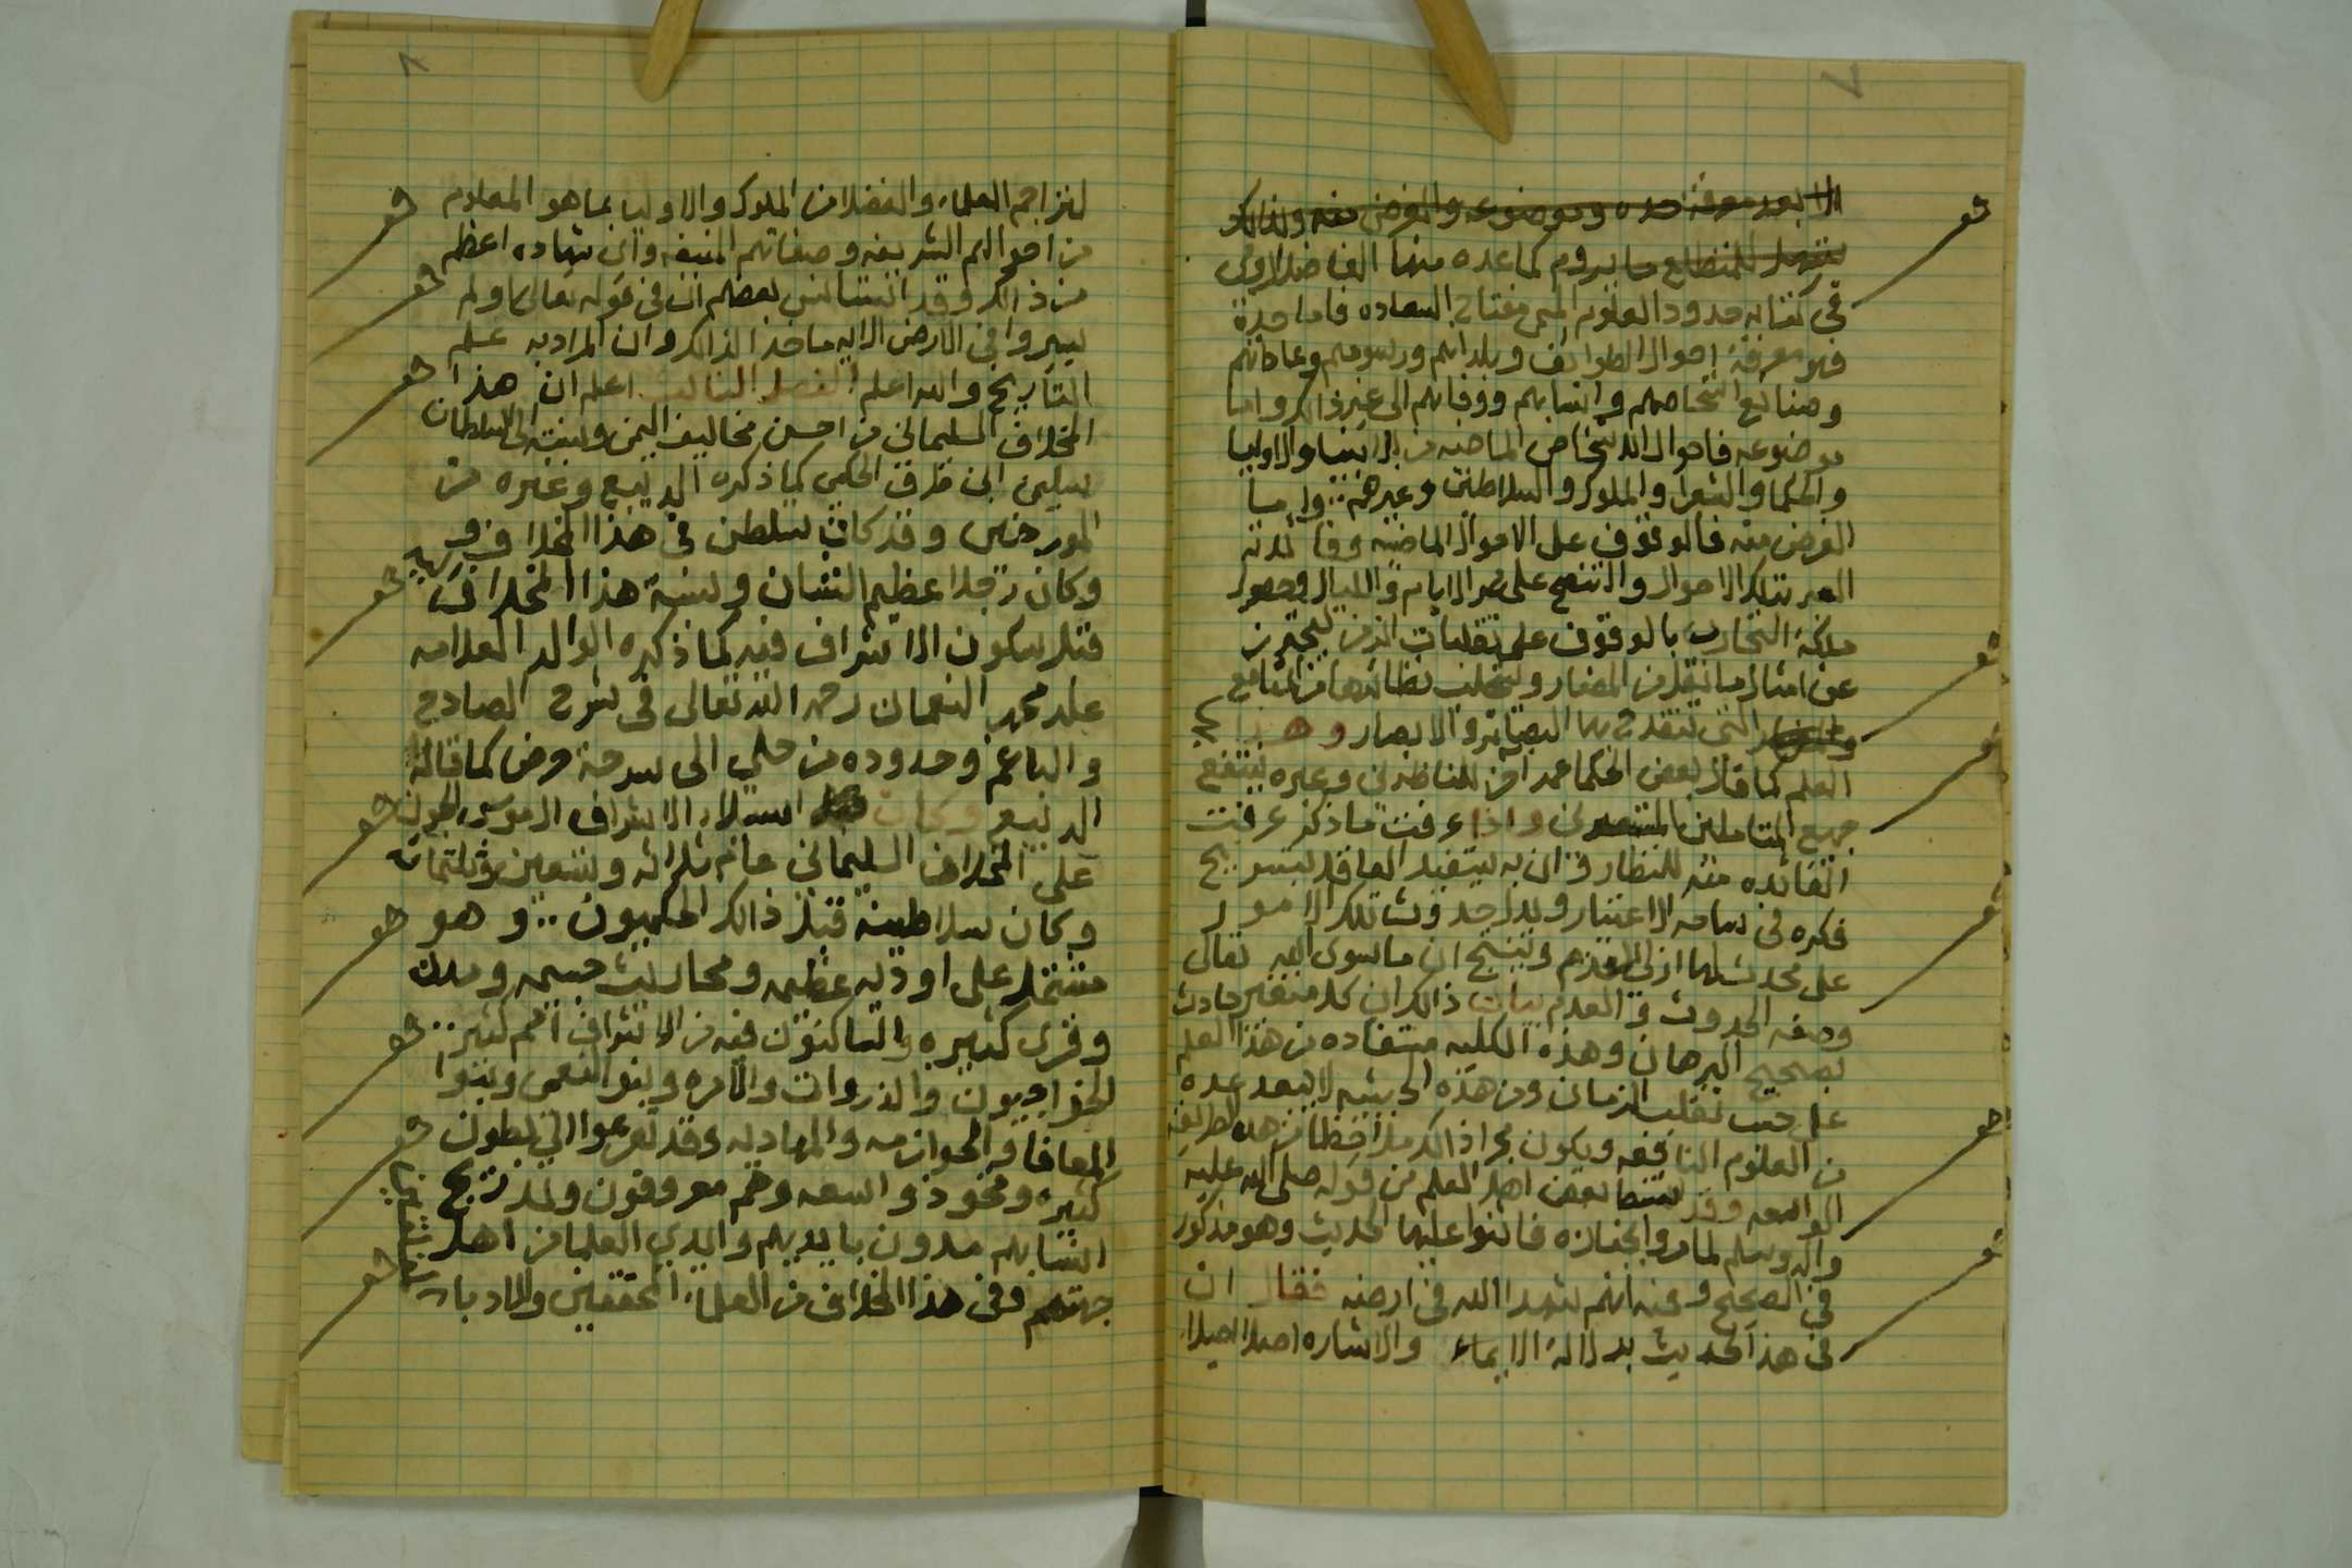 ٧
الا بعد معرفة حده وموضوعه والغرض منه ولذلك
للمتطلع ما يروم كما عده منها الفاضل
في كتابه حدود العلوم المسمى مفتاح السعاده فاما حده
فهو معرفة احوال الطوائف وبلدانهم ورسومهم وعاداتهم
وصنايع اشخاصهم وانسابهم ووفاتهم الى غير ذالك واما
موضوعه فاحوال الاشخاص الماضيه من الانبيا والاوليا
والحكما والشعرا والملوك والسلاطين وغيرهم واما
الغرض منه فالوقوف على الاحوال الماضيه وفائدته
العبر بتلك الاحوال والتنصح على مر الايام والليال وحصول
ملكة التجارب بالوقوف على تقلبات الزمن ليحترز
عن امثال ما نقل من المضار وليجلب نظائرها من المنافع
التي تنقدح بها البصائر والابصار وهذا
العلم كما قال بعض الحكما عمر آخر للناظرين وغيره ينتفع
جميع المتاملين واذا عرفت ما ذكر عرفت
الفائده منه للنظار فان به يستفيد العاقل
فكره في ساحه الاعتبار ويدل حدوث تلك الامور
على محدث لها ازلي القدم وينتج ان ما سوى الله تعالى
وصفه الحدوث والعدم بيان ذالك ان كل متغير حادث
بصحيح البرهان وهذه الكليه مستفاده من هذا العلم
على حسب تقلب الزمان ومن هذه الحيثيه لا يبعد عده
من العلوم النافعه ويكون مجرا ذالك ملاحظا من هذه الطريقه
الواسعه وقد بعض اهل العلم من قوله صلى الله عليه
واله وسلم لما مروا بجنازه فاثنوا عليها الحديث وهو مذكور
في الصحيح وعنه انتم شهدا الله في ارضه فقال ان
في هذا الحديث بدلالة الايماء والاشاره اصلا اصيلا
٨
لتراجم العلماء والفضلا من الملوك والاوليا بما هو المعلوم
من احوالهم الشريفه وصفاتهم المنيفه واي شهاده اعظم
من ذالك وقد بعضهم ان في قوله تعالى اولم
يسيروا في الارض الايه ماخذا لذالك وان المراد به علم
التاريخ والله اعلم الفصل الثالث اعلم ان هذا
المخلاف السليماني من احسن مخاليف اليمن ونسبته الى السلطان
سليمن ابن طرف الحكمي كما ذكره الديبع وغيره من
المورخين وقد كان تسلطن في هذا المخلاف
وكان رجلا عظيم الشان ونسبة هذا المخلاف
قبل سكون الاشراف فيه كما ذكره الوالد العلامه
علي محمد النعمان رحمه الله تعالى في شرح الصادح
والباغم وحدوده من حلي الى شرجة حرض كما قاله
الديبع وكان استيلاء الاشراف
على المخلاف السليماني عام ثلاثه وتسعين وثلثمائه
وكان سلاطينه قبل ذالك الحكميون وهو
مشتمل على اوديه عظيمه ومحاريث جسيمه ومدن
وقرى كثيره والساكنون فيه من الاشراف امم كثير
الخواجيون والذروات والامره وبنو النعمي وبنوا
المعافا والحوازمه والمهاديه وقد تفرعوا الى بطون
كثيره وفخوذ واسعه وهم معروفون ولهذا
انسابهم مدون بايديهم وايدي العلما من اهل
جهتهم وفي هذا المخلاف من العلماء المحققين والادباء